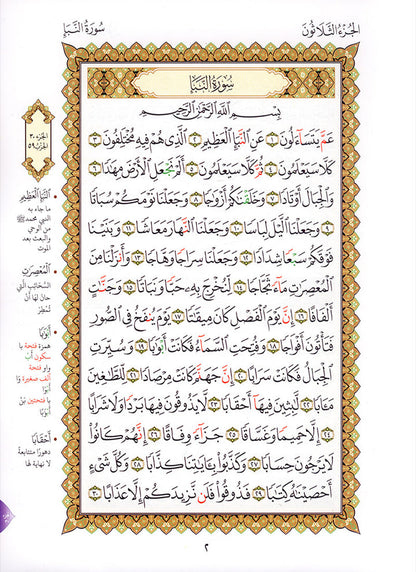 الجُزْءُ الثَّلَاثُونَ
سُورَةُ النَّبَإِ
سُورَةُ النَّبَإِ
بِسْمِ اللَّهِ الرَّحْمَٰنِ الرَّحِيمِ
عَمَّ يَتَسَآءَلُونَ ١ عَنِ ٱلنَّبَإِ ٱلْعَظِيمِ ٢ ٱلَّذِى هُمْ فِيهِ مُخْتَلِفُونَ ٣
كَلَّا سَيَعْلَمُونَ ٤ ثُمَّ كَلَّا سَيَعْلَمُونَ ٥ أَلَمْ نَجْعَلِ ٱلْأَرْضَ مِهَٰدًا ٦
وَٱلْجِبَالَ أَوْتَادًا ٧ وَخَلَقْنَٰكُمْ أَزْوَٰجًا ٨ وَجَعَلْنَا نَوْمَكُمْ سُبَاتًا
٩ وَجَعَلْنَا ٱلَّيْلَ لِبَاسًا ١٠ وَجَعَلْنَا ٱلنَّهَارَ مَعَاشًا ١١ وَبَنَيْنَا
فَوْقَكُمْ سَبْعًا شِدَادًا ١٢ وَجَعَلْنَا سِرَاجًا وَهَّاجًا ١٣ وَأَنزَلْنَا مِنَ
ٱلْمُعْصِرَٰتِ مَآءً ثَجَّاجًا ١٤ لِّنُخْرِجَ بِهِۦ حَبًّا وَنَبَاتًا ١٥ وَجَنَّٰتٍ
أَلْفَافًا ١٦ إِنَّ يَوْمَ ٱلْفَصْلِ كَانَ مِيقَٰتًا ١٧ يَوْمَ يُنفَخُ فِى ٱلصُّورِ
فَتَأْتُونَ أَفْوَاجًا ١٨ وَفُتِحَتِ ٱلسَّمَآءُ فَكَانَتْ أَبْوَٰبًا ١٩ وَسُيِّرَتِ
ٱلْجِبَالُ فَكَانَتْ سَرَابًا ٢٠ إِنَّ جَهَنَّمَ كَانَتْ مِرْصَادًا ٢١ لِّلطَّٰغِينَ
مَـَٔابًا ٢٢ لَّٰبِثِينَ فِيهَآ أَحْقَابًا ٢٣ لَّا يَذُوقُونَ فِيهَا بَرْدًا وَلَا شَرَابًا
٢٤ إِلَّا حَمِيمًا وَغَسَّاقًا ٢٥ جَزَآءً وِفَاقًا ٢٦ إِنَّهُمْ كَانُوا۟
لَا يَرْجُونَ حِسَابًا ٢٧ وَكَذَّبُوا۟ بِـَٔايَٰتِنَا كِذَّابًا ٢٨ وَكُلَّ شَىْءٍ
أَحْصَيْنَٰهُ كِتَٰبًا ٢٩ فَذُوقُوا۟ فَلَن نَّزِيدَكُمْ إِلَّا عَذَابًا ٣٠
الجزء ٣٠
الحزب ٥٩
النَّبَإِ العَظِيمِ
ما جاء به
النبي محمد ﷺ
من الوحي
والبعث بعد
الموت
المُعْصِرَاتِ
السَّحَائِبِ الَّتِي
حَانَ لَهَا أَنْ
تُمْطِرَ
أَبْوَٰبًا
همزة فتحة با
سكون أَبْ
واو فتحة
ألف صغيرة وَا
با فتحتين بًا
أَبْوَٰبًا
أَحْقَابًا
دهورًا متتابعة
لا نهاية لها
٢